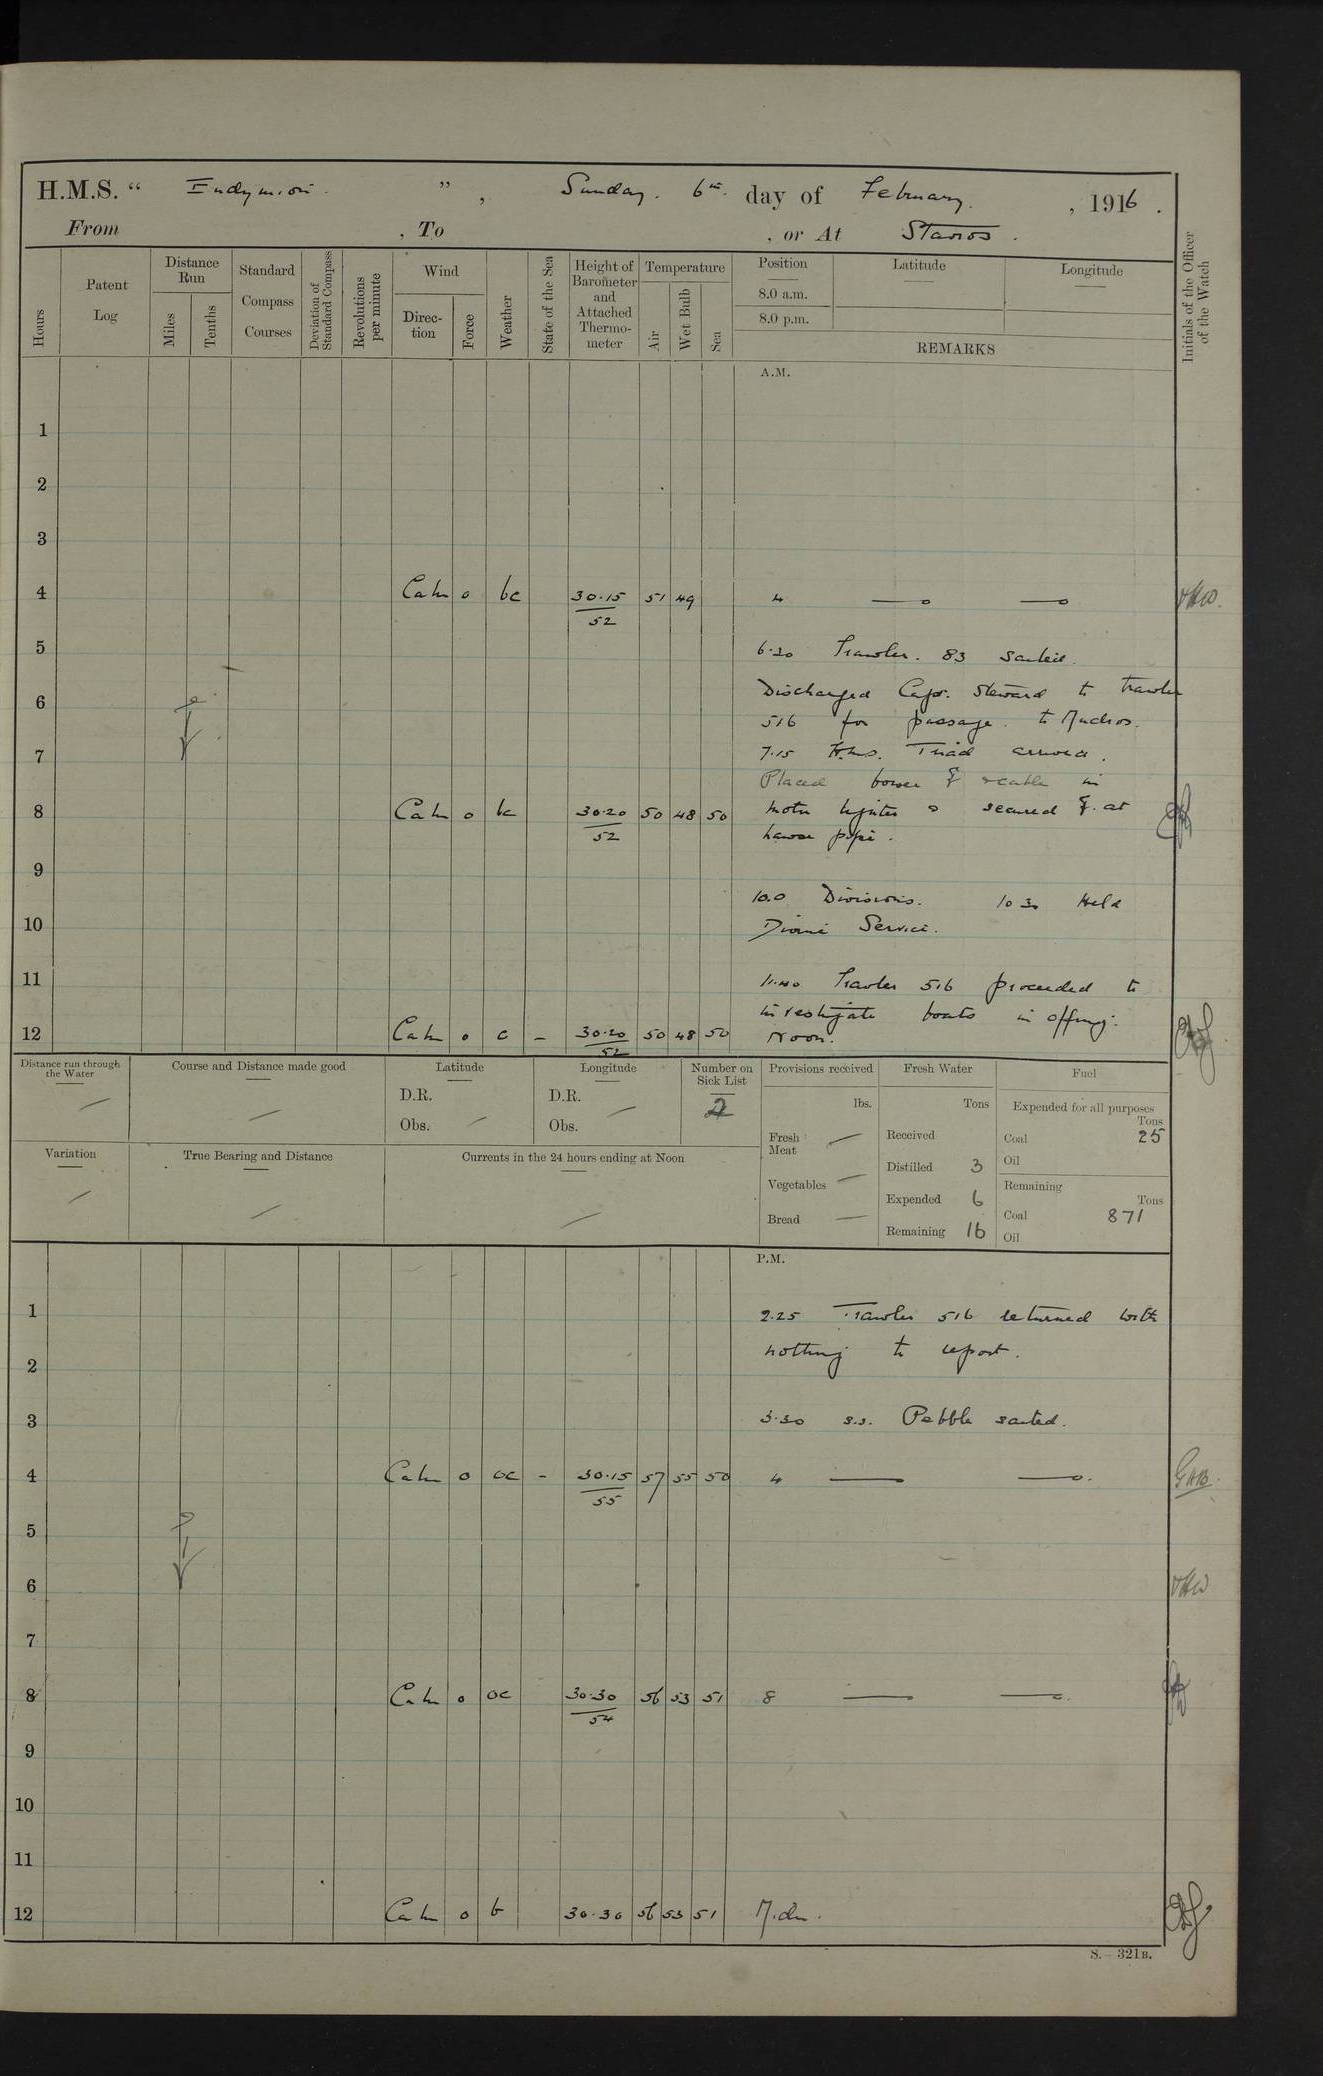 H.M.S. “ Endymion ” , Sunday . 6th day of February. , 1916 .
From , To , or At Stavros .
Hours
Patent Log
Distance Run
Miles
Tenths
Standard Compass Courses
Deviation of Standard Compass
Revolutions per minute
Wind
Direc-tion
Force
Weather
State of the Sea
Height of Barometer and Attached Thermo-meter
Temperature
Air
Wet Bulb
Sea
Position
8.0 a.m.
8.0 p.m.
Latitude
Longitude
REMARKS
Initials of the Officer of the Watch
A.M.
1
2
3
4 Calm 0 bc 30.15 51 49 4
52
5
6.30 Trawler. 83 sailed.
Discharged Capt. Steward to trawler
6
516 for passage. to Mudros.
7
7.15 H.M.S. Triad arrived.
Placed bower & cable in
8 Calm 0 bc 30.20 50 48 50 motor lighter & secured at
52 hawse pipe.
9
10.0 Divisions. 10 30 Held
10
Divine Service.
11
11.40 Trawler 516 proceeded to
investigate boats in offing.
12 Calm 0 c - 30.20 50 48 50 Noon.
52
Distance run through the Water
Course and Distance made good
Latitude
D.R.
Obs.
Longitude
D.R.
Obs.
Number on Sick List
2
Provisions received
lbs.
Fresh Meat
Vegetables
Bread
Fresh Water
Tons
Received
Distilled 3
Expended 6
Remaining 16
Fuel
Expended for all purposes
Tons
Coal 25
Oil
Remaining
Tons
Coal 871
Oil
Variation
True Bearing and Distance
Currents in the 24 hours ending at Noon
P.M.
1
2.25 Trawler 516 returned with
2
nothing to report.
3
3.30 s.s. Pebble sailed.
4 Calm 0 oc - 30.15 57 55 50 4 GAB.
55
5
6
7
8 Calm 0 oc 30.30 56 53 51 8
54
9
10
11
12 Calm 0 b 30.30 56 53 51 M.dn.
S.—321B.